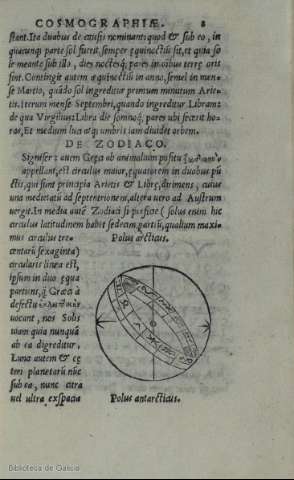 COSMOGRAPHIÆ. 8
stant. Ita duabus de causis nominant: quod & sub eo, in
quacunq; parte sol fuerit, semper æquinoctiū sit, et quia so
le meante sub illo, dies noctesq; pares in oībus terrę oris
sint. Contingit autem æquinoctiū in anno, semel in men-
se Martio, quādo sol ingreditur primum minutum Arie-
tis. Iterum mense Septembri, quando ingreditur Libram:
de qua Virgilius: Libra die somnoq; pares ubi fecerit ho-
ras, Et medium luci atq; umbris iam diuidet orbem.
DE ZODIACO.
Signifer autem Gręca ab animalium positu
appellant, est circulus maior, equatorem in duobus pū
ctis, qui sunt principia Arietis & Librę, dirimens, cuius
una medietas ad septentrionem, altera uero ad Austrum
vergit. In media autē Zodiaci su pficie (solus enim hic
circulus latitudinem habit sedecim partiū, qualium maxi-
mus circulus tre-
centarū sexaginta)
circularis linea est,
ipsum in duo equa
partiens, q̄ Gręci à
defectu
uocant, nos Solis
uiam quia nunquā
ab ea digreditur.
Luna autem & cę
teri planetarū nūc
sub ea, nunc citra
uel ultra exspacia
Polus arcticus.
Polus antarcticus.
Biblioteca de Galicia